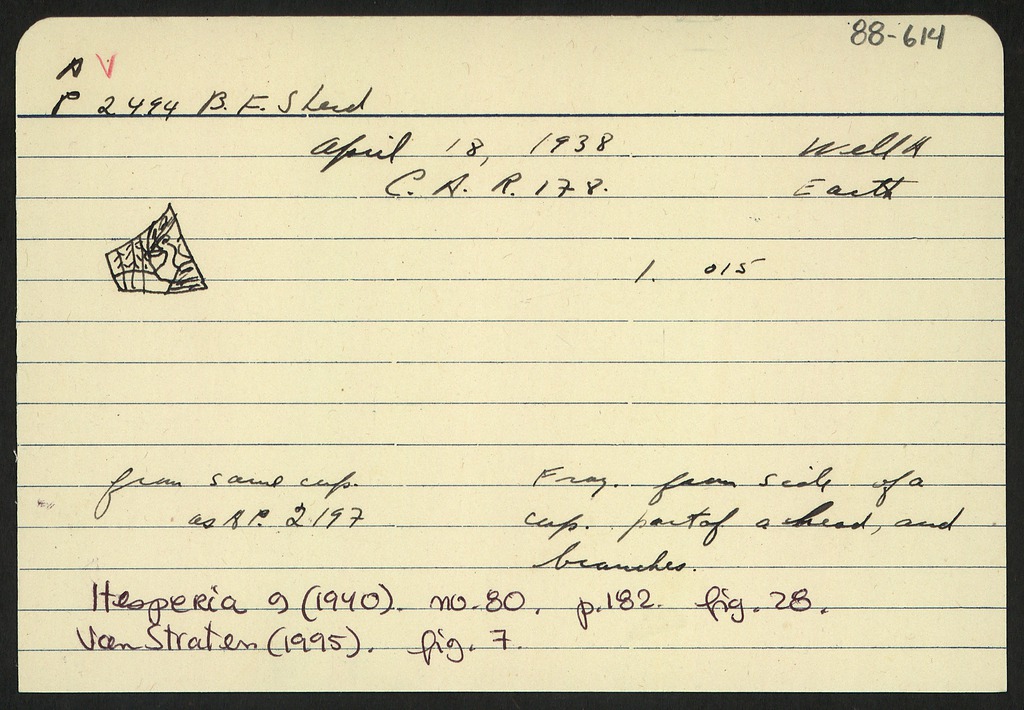 88-614
A V
P 2494 B. F. Sherd
April 18, 1938 Well A
C. A. R. 178. Earth
1. 015
from same cup. Frag. from side of a
as A P. 2197 cup. part of a head, and
branches.
Hesperia 9 (1940). no. 80. p. 182. fig. 28.
Van Straten (1995). fig. 7.